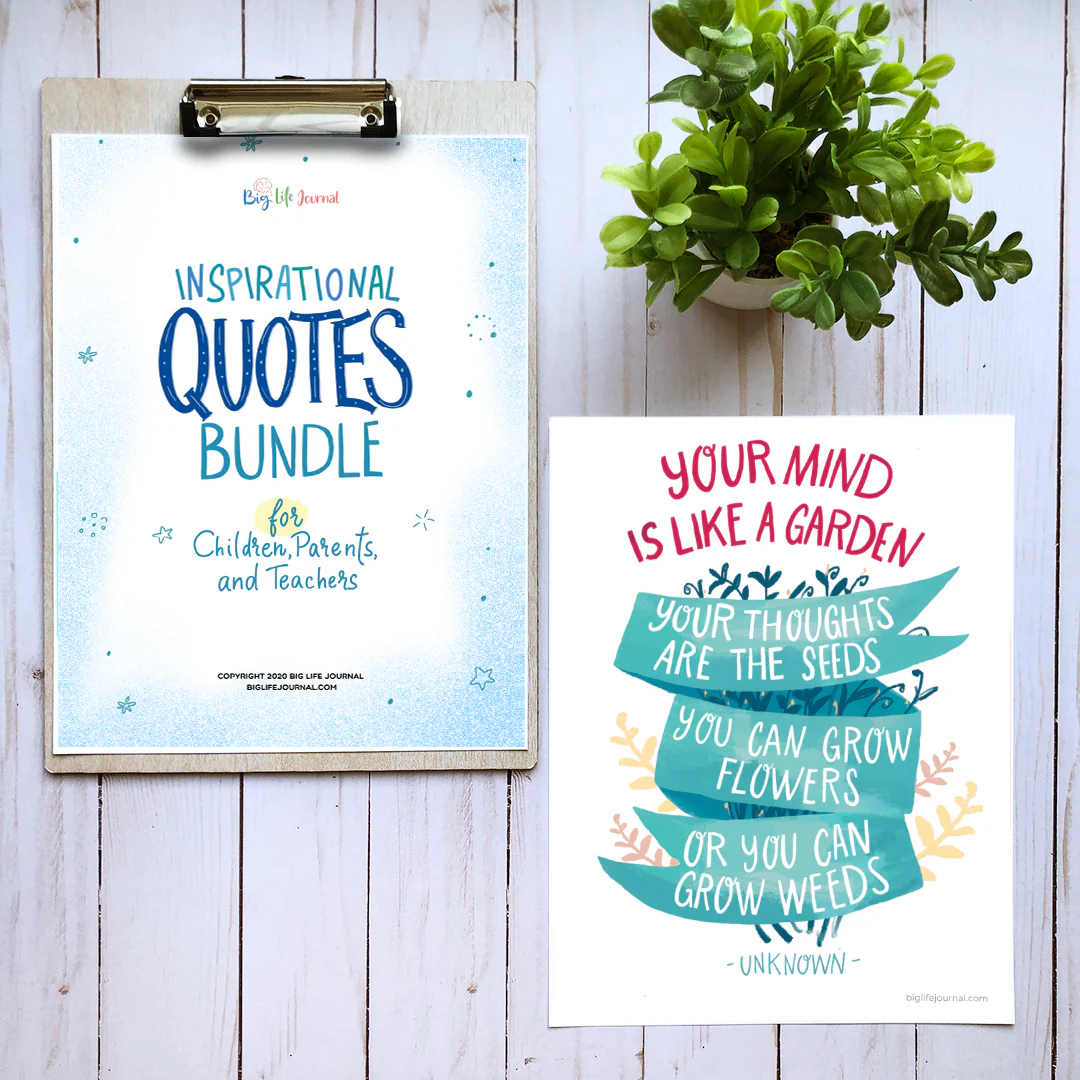 Big Life Journal
INSPIRATIONAL
QUOTES
BUNDLE
for
Children, Parents,
and Teachers
COPYRIGHT 2020 BIG LIFE JOURNAL
BIGLIFEJOURNAL.COM
YOUR MIND
IS LIKE A GARDEN
YOUR THOUGHTS
ARE THE SEEDS
YOU CAN GROW
FLOWERS
OR YOU CAN
GROW WEEDS
- UNKNOWN -
biglifejournal.com